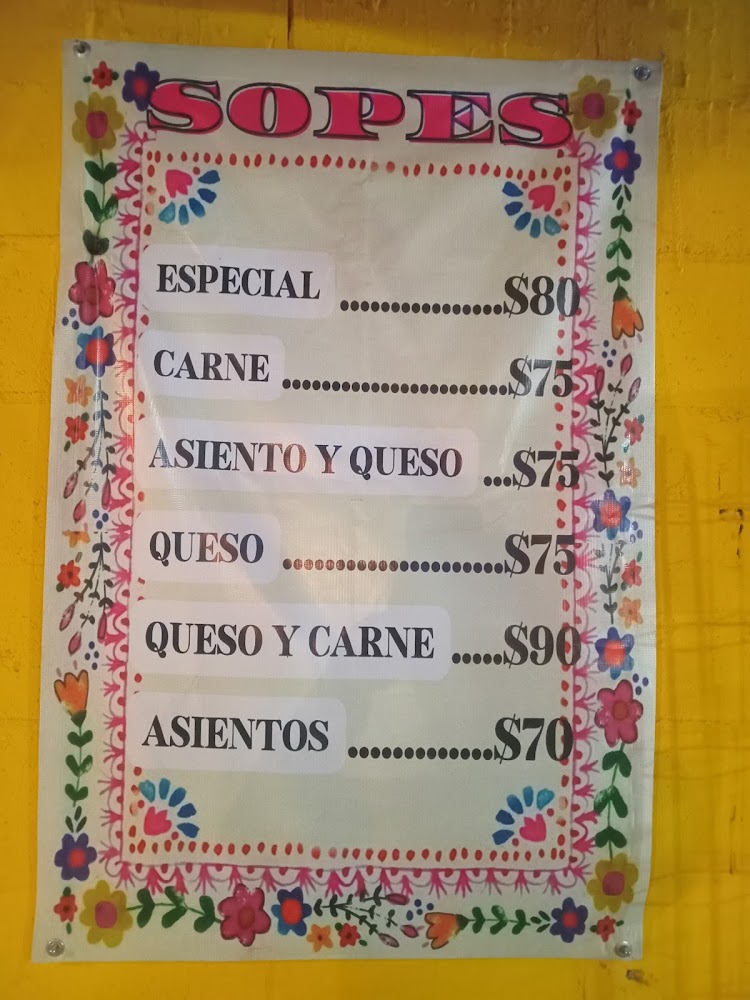 SOPES
ESPECIAL ................$80
CARNE .......................$75
ASIENTO Y QUESO ...$75
QUESO .......................$75
QUESO Y CARNE .....$90
ASIENTOS ...............$70